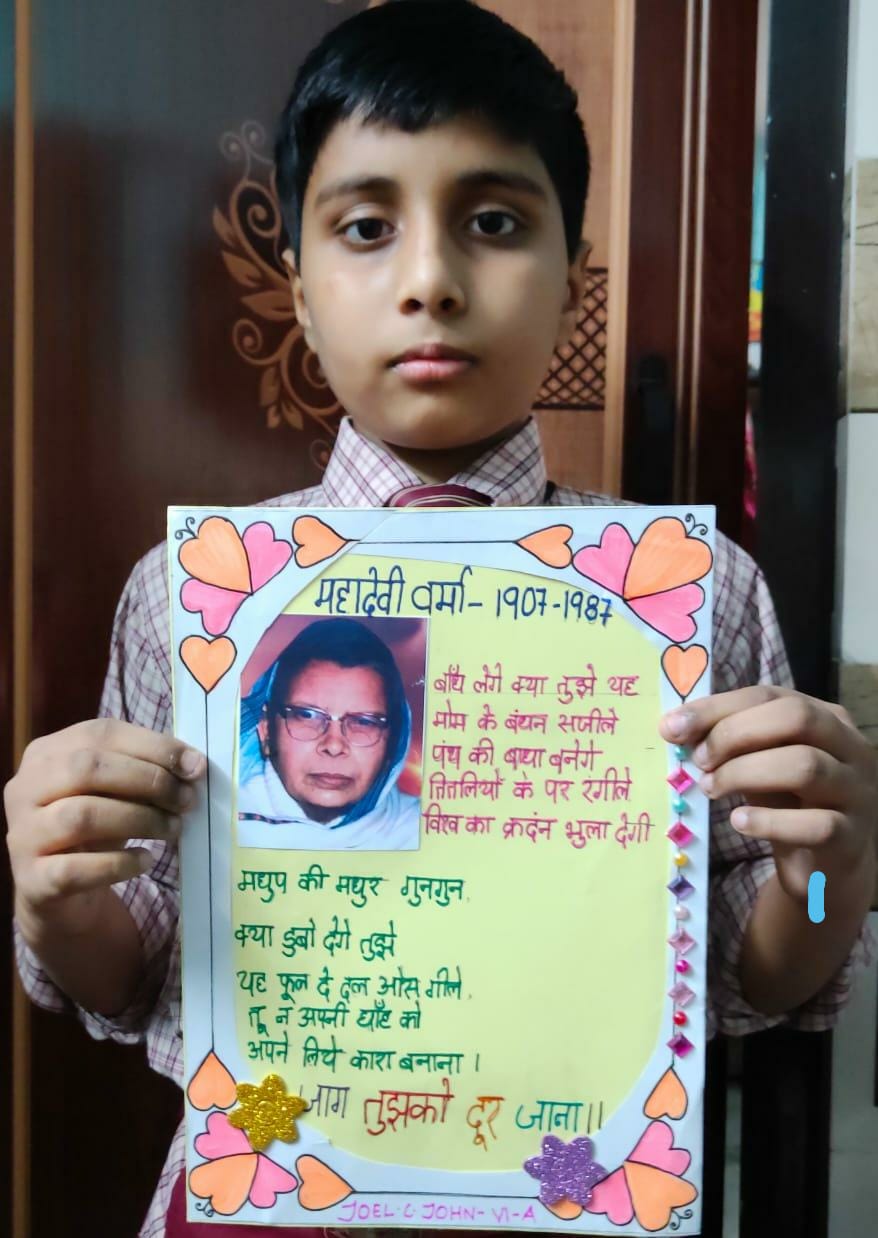 महादेवी वर्मा- 1907-1987
बाँध लेंगे क्या तुझे यह
मोम के बंधन सजीले
पंथ की बाधा बनेंगे
तितलियों के पर रंगीले
विश्व का क्रदंन भुला देगी
मधुप की मधुर गुनगुन,
क्या डुबो देंगे तुझे
यह फूल दे दल ओस गीले,
तू न अपनी छाँह को
अपने लिये कारा बनाना।
जाग तुझको दूर जाना॥
JOEL.C.JOHN-VI-A